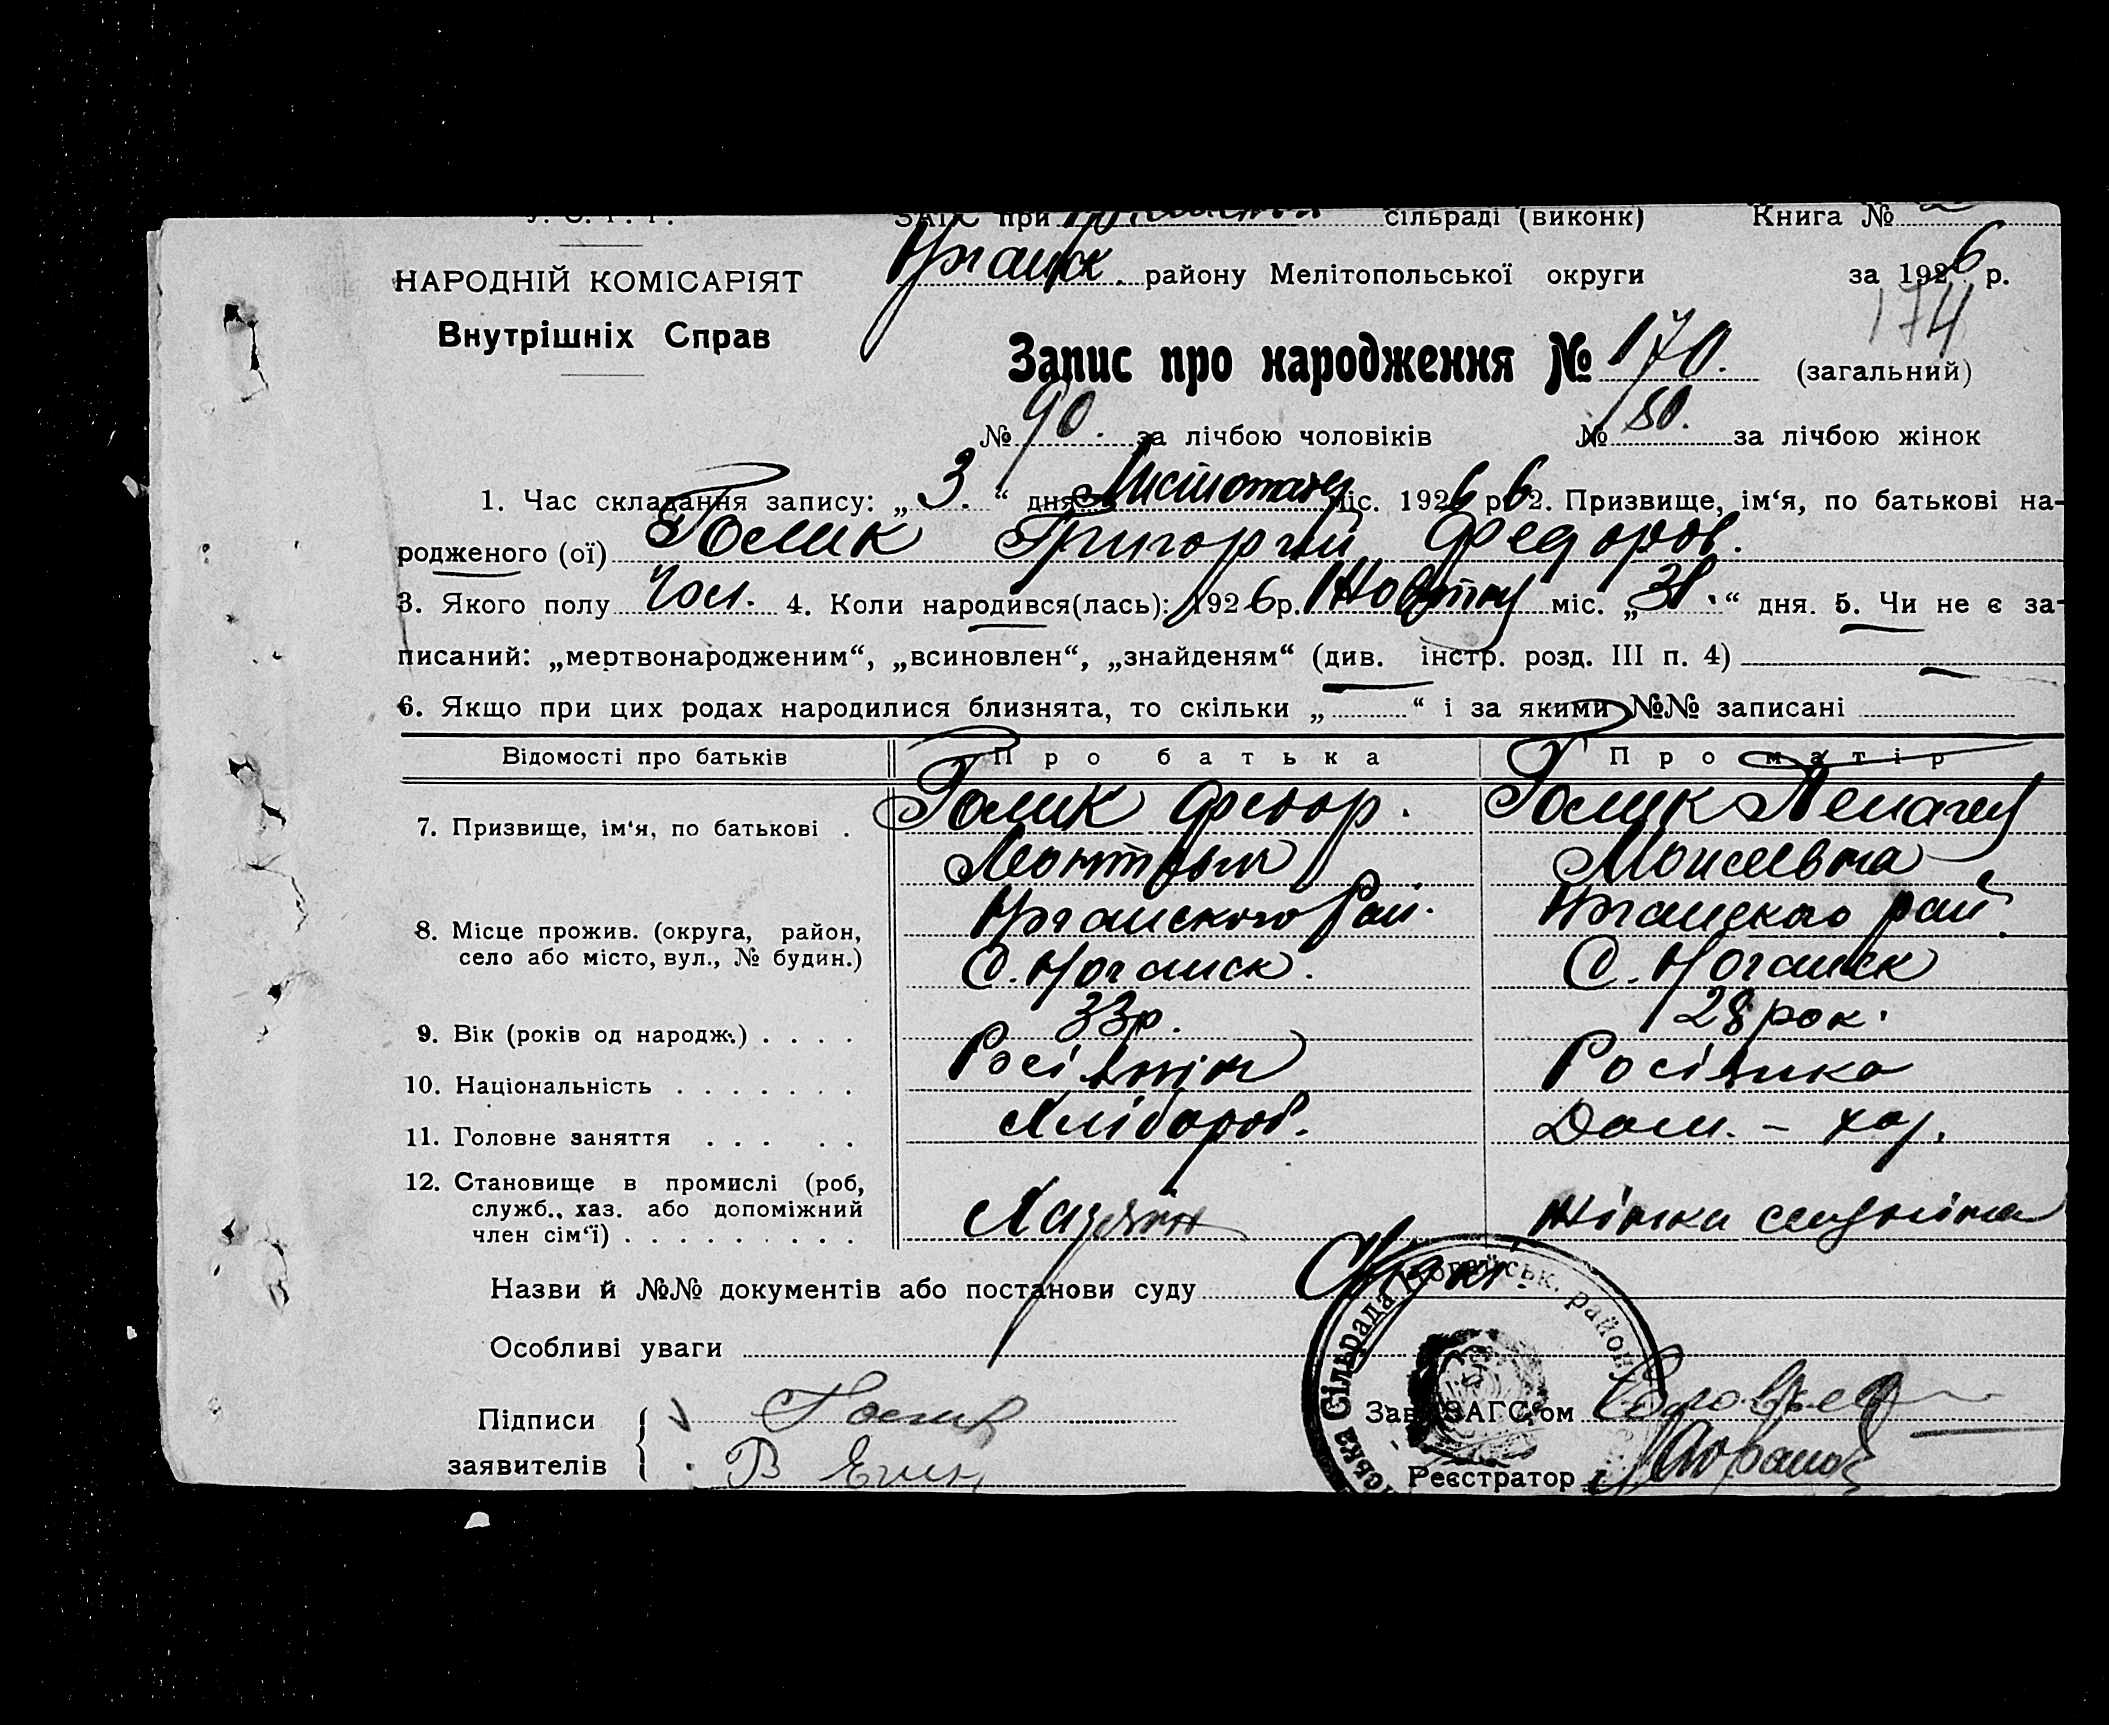 У. С. Р. Р. ЗАГС при сільраді (виконк) Книга № 2
Ногайск. району Мелітопольської округи за 1926 р.
НАРОДНІЙ КОМІСАРІЯТ
174
Внутрішніх Справ
Запис про народження № 170. (загальний)
№ 90. за лічбою чоловіків № 80. за лічбою жінок
1. Час складання запису: „3.“ дня Листопаду міс. 1926 р. 2. Призвище, ім‘я, по батькові на-
родженого (ої) Голик Григорій Федоров.
3. Якого полу Чол. 4. Коли народився(лась): 1926 р. Жовтня міс. „31.“ дня. 5. Чи не є за-
писаний: „мертвонародженим“, „всиновлен“, „знайденям“ (див. інстр. розд. III п. 4) —
6. Якщо при цих родах народилися близнята, то скільки „ “ і за якими №№ записані
Відомості про батьків Про батька Про матір
7. Призвище, ім‘я, по батькові . Голик Федор. Голик Пелагея
Леонтьев Моисеевна
8. Місце прожив. (округа, район, Ногайского Рай. Ногайского рай.
село або місто, вул., № будин.) С. Ногайск. С. Ногайск
9. Вік (років од народж.) . . . . 33 р. 28 рок.
10. Національність . . . . . . . Росіянін Росіянка
11. Головне заняття . . . . . Хлібороб. Дом. - хоз.
12. Становище в промислі (роб,
служб., хаз. або допоміжний Хазяін
член сім‘ї) . . . . . . . . .
Назви й №№ документів або постанови суду
Особливі уваги
Підписи заявителів { Голик
Зав. ЗАГС‘ом
Реєстратор
Сільрада Ногайськ. району